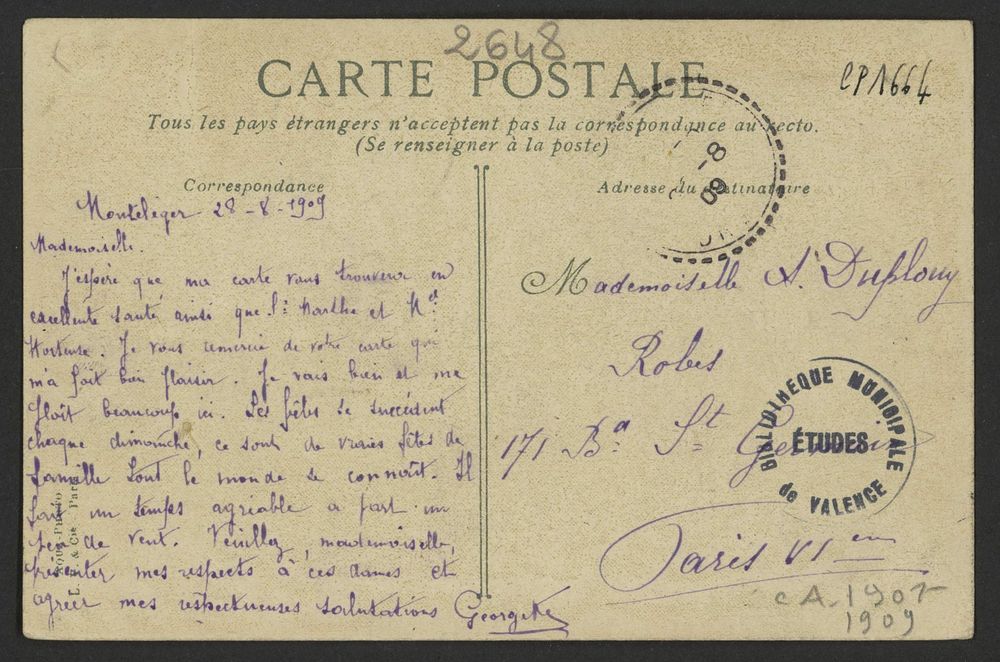 2648
CP1664
CARTE POSTALE
Tous les pays étrangers n'acceptent pas la correspondance au recto.
(Se renseigner à la poste)
Correspondance
Adresse du destinataire
-8
09
Monteléger 28-8-1909
Mademoiselle.
J'espère que ma carte vous trouvera en
excellente santé ainsi que Marthe et
Hortense. Je vous remercie de votre carte qui
m'a fait bien plaisir. Je vais bien et me
plaît beaucoup ici. Les fêtes se succèdent
chaque dimanche, ce sont de vraies fêtes de
famille tout le monde se connaît. Il
fait un temps agréable a part un
peu de vent. Veuillez, mademoiselle,
présenter mes respects à ces dames et
agréer mes respectueuses salutations Georgette
Mademoiselle A. Duplouy
Robes
171 Bd St Germain
Paris VIem
BIBLIOTHEQUE MUNICIPALE
ÉTUDES
de VALENCE
cA. 1907-
1909